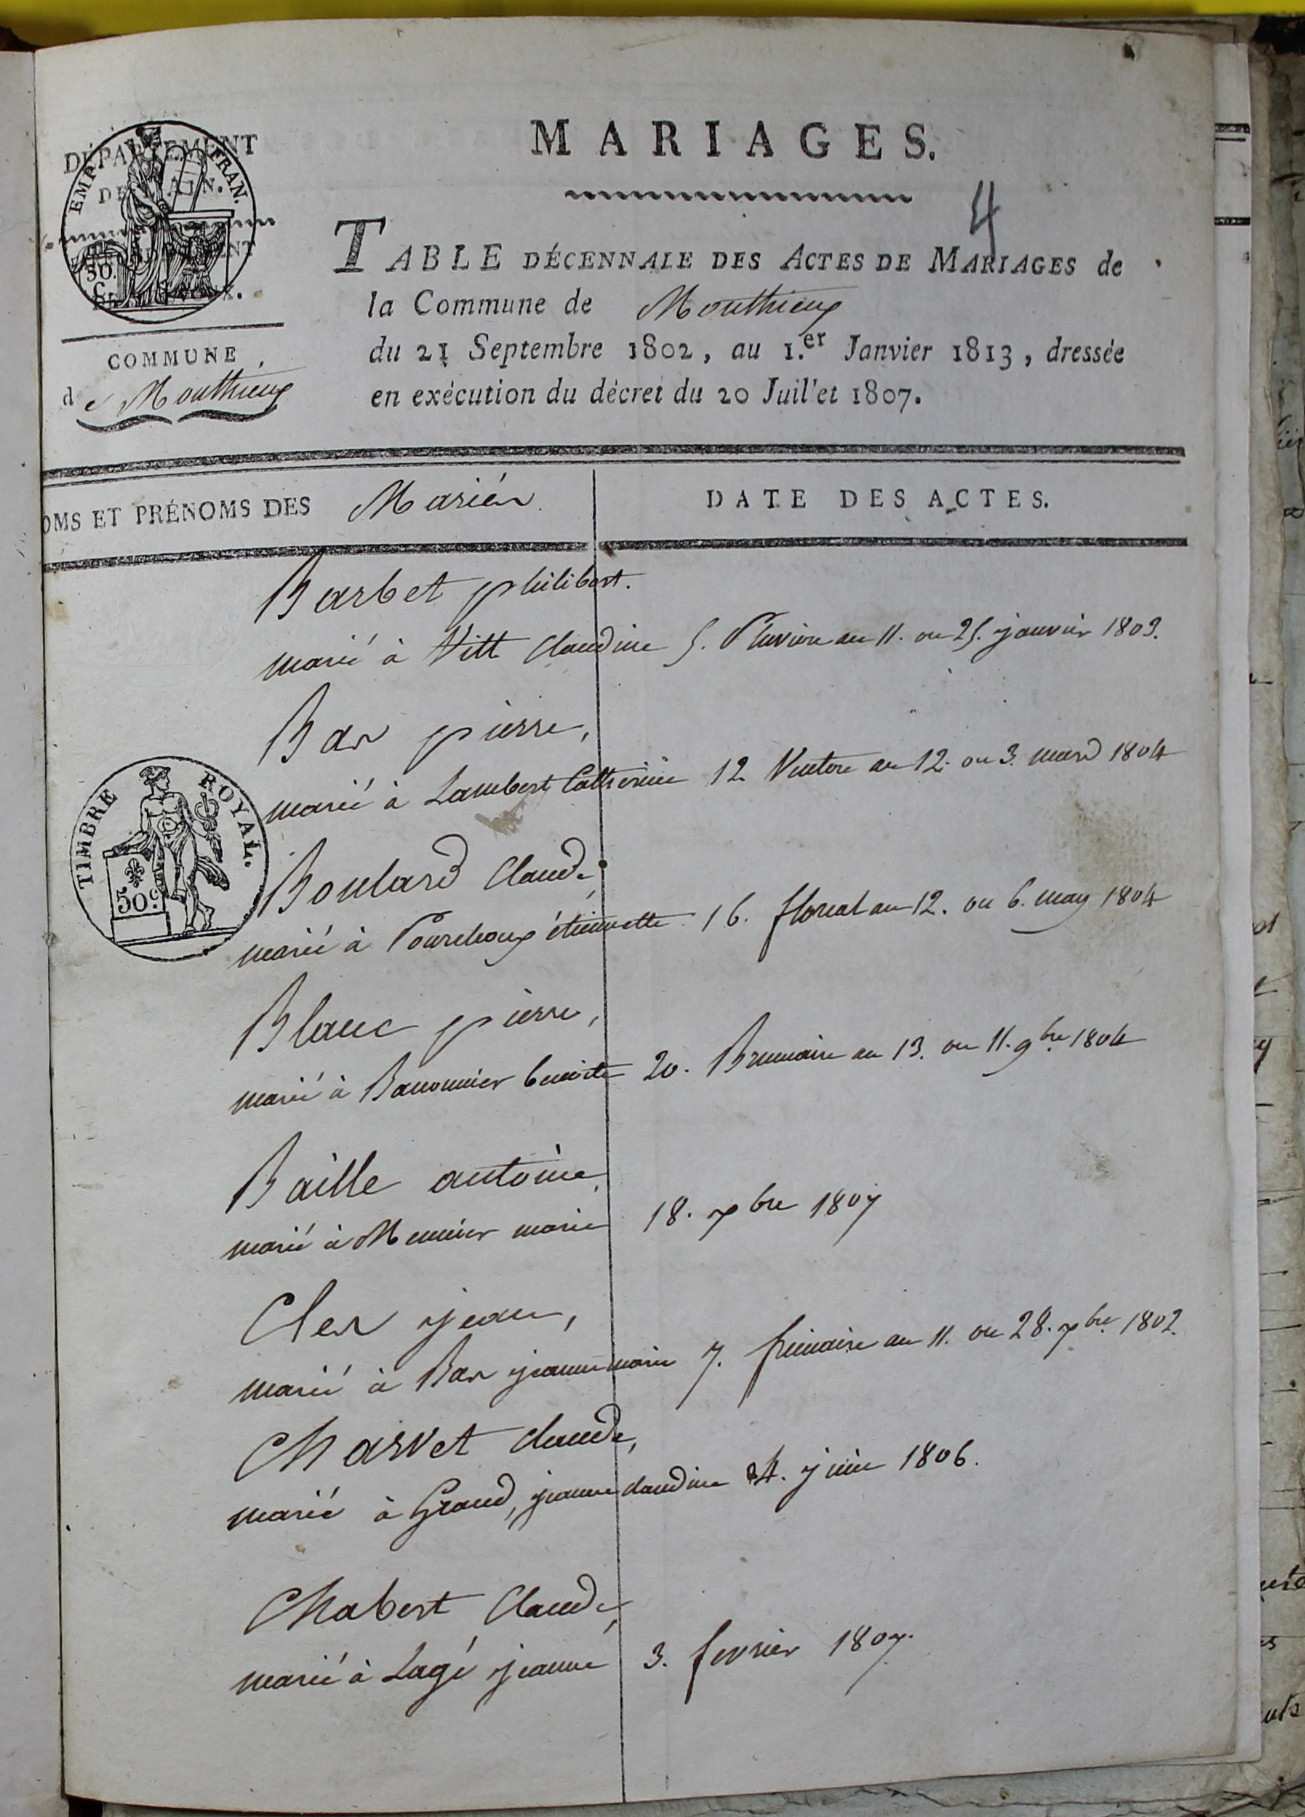 MARIAGES.
4
DÉPARTEMENT
DE L'AIN.
EMP. FRAN.
50.
C.
TABLE DÉCENNALE DES ACTES DE MARIAGES de
la Commune de Monthieux
du 21 Septembre 1802, au 1.er Janvier 1813, dressée
en exécution du décret du 20 Juil'et 1807.
COMMUNE
de Monthieux
OMS ET PRÉNOMS DES Mariés
DATE DES ACTES.
Barbet philibert.
marié à Vitt Claudine 5. Pluviose an 11. ou 25. janvier 1803.
Bas pierre,
marié à Lambert Catherine 12 Ventose an 12. ou 3. mars 1804
TIMBRE ROYAL.
50c
Boulard Claude,
marié à Pourchoux étiennette 16. floreal an 12. ou 6. may 1804
Blanc pierre,
marié à benoite 20. Brumaire an 13. ou 11. 9bre 1804
Baille antoine,
marié à Meunier marie 18. 7bre 1807
Cler jean,
marié à Bas jeanne marie 7. frimaire an 11. ou 28. bre 1802.
Charvet Claude,
marié à Grand, jeanne claudine 24. juin 1806.
Chabert Claude,
marié à Lagé jeanne 3. fevrier 1807.